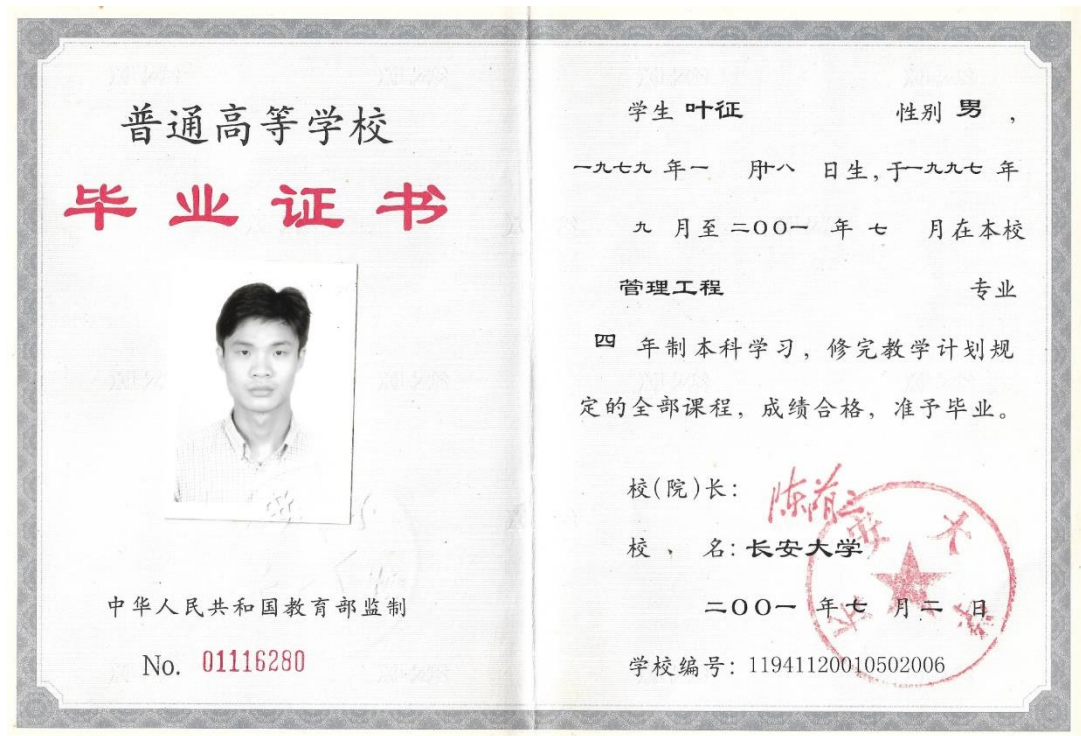 普通高等学校
毕业证书
中华人民共和国教育部监制
No. 01116280
学生 叶征 性别 男 ，
一九七九 年 一 月 廿八 日生，于 一九九七 年
九 月至 二00一 年 七 月在本校
管理工程 专业
四 年制本科学习，修完教学计划规
定的全部课程，成绩合格，准予毕业。
校(院)长：
校 名：长安大学
二00一 年 七 月 二 日
学校编号：11941120010502006
长安大学